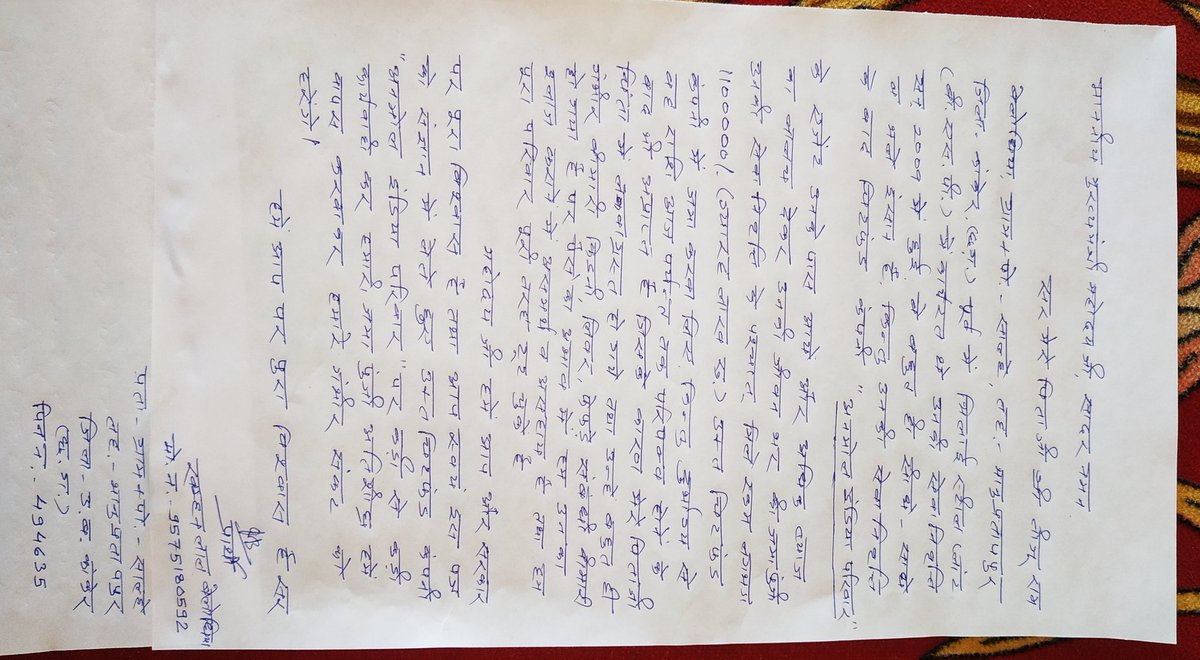 माननीय मुख्यमंत्री महोदय जी, सादर नमन
सर मेरे पिता जी श्री तीज राम
भनोदिया, ग्राम+पो.- साल्हे, तह.- भानुप्रतापपुर
जिला- कांकेर (छ.ग.) पूर्व में भिलाई स्टील प्लांट
(बी एस पी.) में कार्यरत थे उनकी सेवा निवृत्ति
सन् 2009 में हुई वे बहुत ही सीधे-साधे
व भले इंसान हैं, किन्तु उनकी सेवा निवृत्ति
के बाद चिटफंड कंपनी "अनमोल इंडिया परिवार"
के एजेंट उनके पास आये और अधिक ब्याज
का लालच देकर उनकी जीवन भर की जमा पूंजी
उनकी सेवा निवृत्ति के पश्चात् मिले रकम लगभग
1100000/- (ग्यारह लाख रु.) उक्त चिटफंड
कंपनी में जमा करवा दिए, किन्तु दुर्भाग्य से
वह राशि आज पर्यन्त तक परिपक्व होने के
बाद भी अप्राप्त है जिसके कारण मेरे पिताजी
चिंता में लकवाग्रस्त हो गये तथा उन्हें बहुत ही
गंभीर बीमारी किडनी, लिवर, फेफड़े संबंधी बीमारी
हो गया है पर पैसे का अभाव में हम उनका
इलाज कराने में असमर्थ व असहाय है तथा हम
पूरा परिवार पूरी तरह टूट चुके हैं
महोदय जी हमें आप और सरकार
पर पूरा विश्वास है तथा आप स्वयं इस पत्र
के संज्ञान में लेते हुए उक्त चिटफंड कंपनी
"अनमोल इंडिया परिवार" पर कड़ी से कड़ी
कार्यवाही कर हमारी जमा पूंजी अतिशीघ्र हमें
वापस करवाकर हमारे गंभीर संकट को
हरेंगे।
हमें आप पर पूरा विश्वास है सर
प्रार्थी
लाल भनोदिया
मो.न.- 9575180592
पता- ग्राम+पो.- साल्हे
तह.- भानुप्रतापपुर
जिला- उ.ब. कांकेर
(छ.ग.)
पिन नं.- 494635